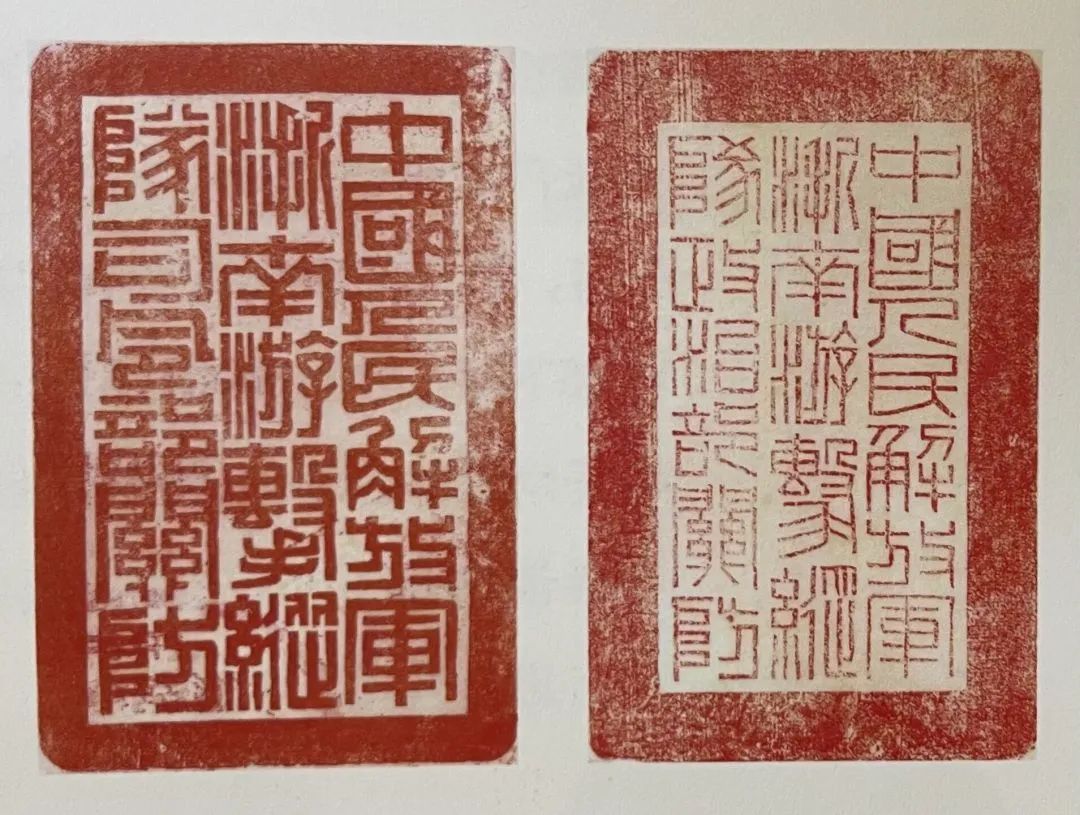 中國人民解放軍
浙南游擊縱
隊司令部關防
中國人民解放軍
浙南游擊縱
隊政治部關防